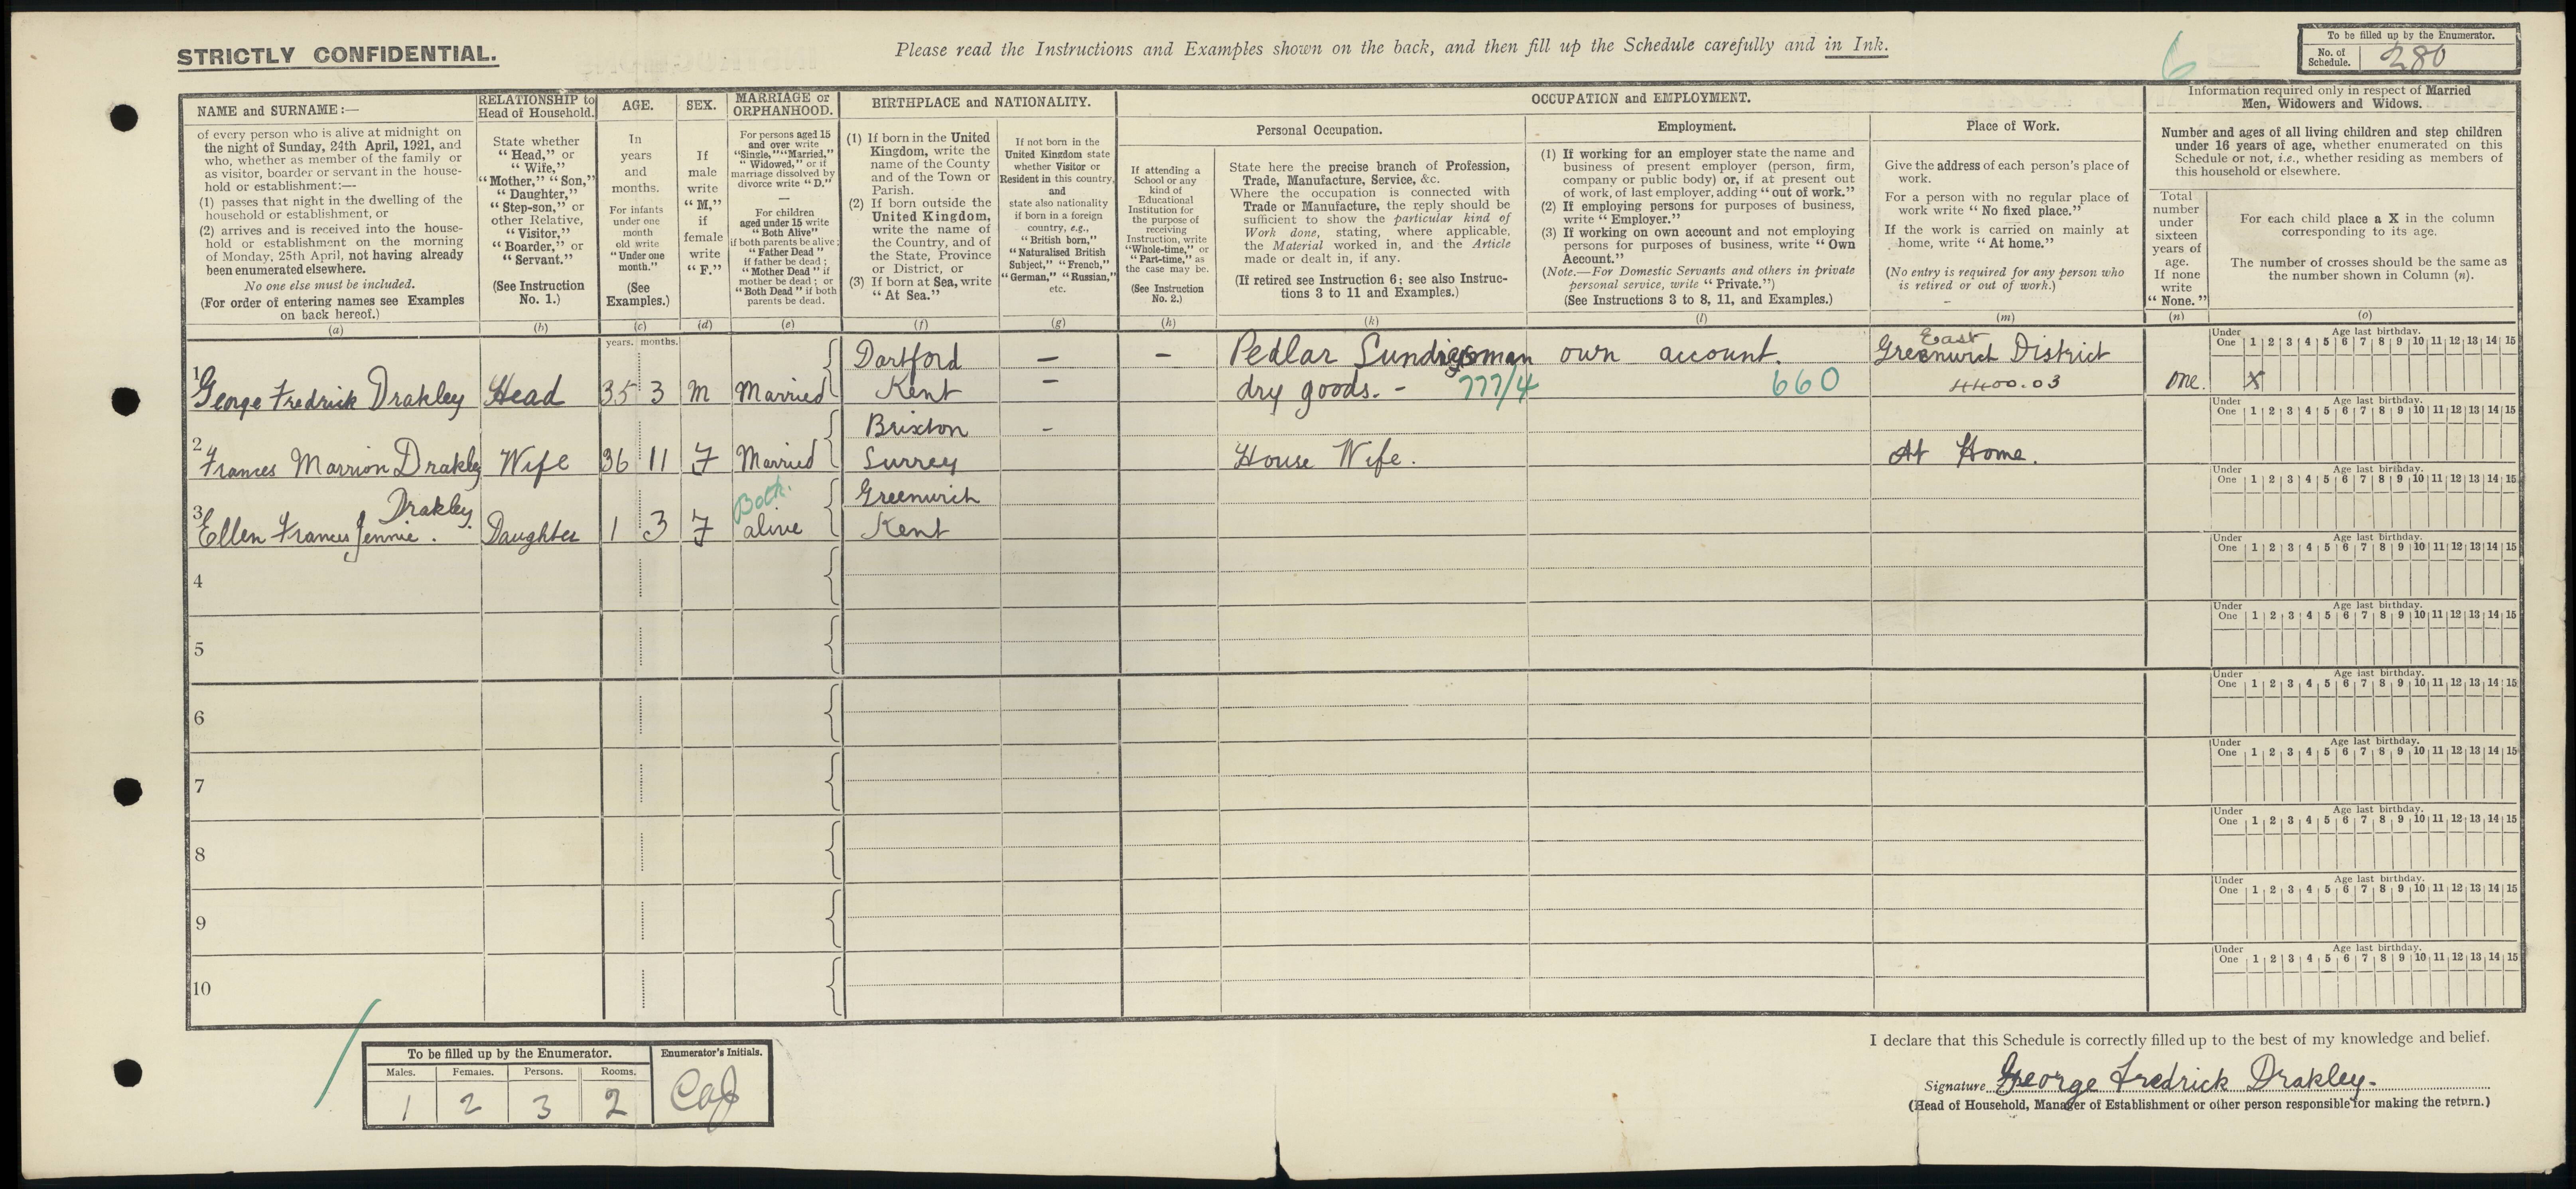 STRICTLY CONFIDENTIAL.
Please read the Instructions and Examples shown on the back, and then fill up the Schedule carefully and in Ink.
6
To be filled up by the Enumerator.
No. of Schedule. 280
NAME and SURNAME:—
of every person who is alive at midnight on
the night of Sunday, 24th April, 1921, and
who, whether as member of the family or
as visitor, boarder or servant in the house-
hold or establishment:—
(1) passes that night in the dwelling of the
household or establishment, or
(2) arrives and is received into the house-
hold or establishment on the morning
of Monday, 25th April, not having already
been enumerated elsewhere.
No one else must be included.
(For order of entering names see Examples
on back hereof.)
(a)
RELATIONSHIP to
Head of Household.
State whether
"Head," or
"Wife,"
"Mother," "Son,"
"Daughter,"
"Step-son," or
other Relative,
"Visitor,"
"Boarder," or
"Servant."
(See Instruction
No. 1.)
(b)
AGE.
In
years
and
months.
For infants
under one
month
old write
"Under one
month."
(See
Examples.)
(c)
SEX.
If
male
write
"M,"
if
female
write
"F."
(d)
MARRIAGE or
ORPHANHOOD.
For persons aged 15
and over write
"Single," "Married,"
"Widowed," or if
marriage dissolved by
divorce write "D."
—
For children
aged under 15 write
"Both Alive"
if both parents be alive;
"Father Dead"
if father be dead;
"Mother Dead" if
mother be dead; or
"Both Dead" if both
parents be dead.
(e)
BIRTHPLACE and NATIONALITY.
(1) If born in the United
Kingdom, write the
name of the County
and of the Town or
Parish.
(2) If born outside the
United Kingdom,
write the name of
the Country, and of
the State, Province
or District, or
(3) If born at Sea, write
"At Sea."
(f)
If not born in the
United Kingdom state
whether Visitor or
Resident in this country,
and
state also nationality
if born in a foreign
country, e.g.,
"British born,"
"Naturalised British
Subject," "French,"
"German," "Russian,"
etc.
(g)
OCCUPATION and EMPLOYMENT.
If attending a
School or any
kind of
Educational
Institution for
the purpose of
receiving
Instruction, write
"Whole-time," or
"Part-time," as
the case may be.
(See Instruction
No. 2.)
(h)
Personal Occupation.
State here the precise branch of Profession,
Trade, Manufacture, Service, &c.
Where the occupation is connected with
Trade or Manufacture, the reply should be
sufficient to show the particular kind of
Work done, stating, where applicable,
the Material worked in, and the Article
made or dealt in, if any.
(If retired see Instruction 6; see also Instruc-
tions 3 to 11 and Examples.)
(k)
Employment.
(1) If working for an employer state the name and
business of present employer (person, firm,
company or public body) or, if at present out
of work, of last employer, adding "out of work."
(2) If employing persons for purposes of business,
write "Employer."
(3) If working on own account and not employing
persons for purposes of business, write "Own
Account."
(Note.—For Domestic Servants and others in private
personal service, write "Private.")
(See Instructions 3 to 8, 11, and Examples.)
(l)
Place of Work.
Give the address of each person's place of
work.
For a person with no regular place of
work write "No fixed place."
If the work is carried on mainly at
home, write "At home."
(No entry is required for any person who
is retired or out of work.)
(m)
Information required only in respect of Married
Men, Widowers and Widows.
Number and ages of all living children and step children
under 16 years of age, whether enumerated on this
Schedule or not, i.e., whether residing as members of
this household or elsewhere.
Total
number
under
sixteen
years of
age.
If none
write
"None."
(n)
For each child place a X in the column
corresponding to its age.
The number of crosses should be the same as
the number shown in Column (n).
(o)
years. months.
Under One Age last birthday. 1 2 3 4 5 6 7 8 9 10 11 12 13 14 15
Dartford — — Pedlar Sundriesman own account. East Greenwich District
1 George Fredrick Drakley Head 35 3 M Married Kent — dry goods. - 777/4 660 4400.03 one. X
Under One Age last birthday. 1 2 3 4 5 6 7 8 9 10 11 12 13 14 15
Brixton —
2 Frances Marrion Drakley Wife 36 11 F Married Surrey House Wife. At Home.
Under One Age last birthday. 1 2 3 4 5 6 7 8 9 10 11 12 13 14 15
Drakley Both Greenwich
3 Ellen Frances Jennie. Daughter 1 3 F alive Kent
Under One Age last birthday. 1 2 3 4 5 6 7 8 9 10 11 12 13 14 15
4
Under One Age last birthday. 1 2 3 4 5 6 7 8 9 10 11 12 13 14 15
5
Under One Age last birthday. 1 2 3 4 5 6 7 8 9 10 11 12 13 14 15
6
Under One Age last birthday. 1 2 3 4 5 6 7 8 9 10 11 12 13 14 15
7
Under One Age last birthday. 1 2 3 4 5 6 7 8 9 10 11 12 13 14 15
8
Under One Age last birthday. 1 2 3 4 5 6 7 8 9 10 11 12 13 14 15
9
Under One Age last birthday. 1 2 3 4 5 6 7 8 9 10 11 12 13 14 15
10
To be filled up by the Enumerator.
Males. Females. Persons. Rooms.
1 2 3 2
Enumerator's Initials.
I declare that this Schedule is correctly filled up to the best of my knowledge and belief.
Signature George Fredrick Drakley.
(Head of Household, Manager of Establishment or other person responsible for making the return.)